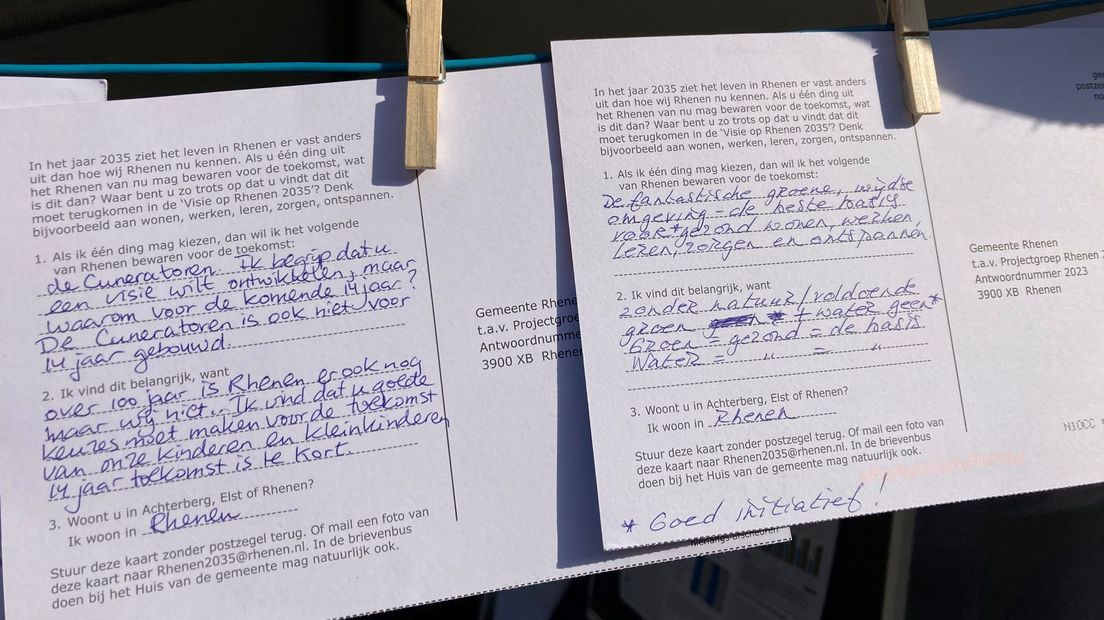 In het jaar 2035 ziet het leven in Rhenen er vast anders
uit dan hoe wij Rhenen nu kennen. Als u één ding uit
het Rhenen van nu mag bewaren voor de toekomst, wat
is dit dan? Waar bent u zo trots op dat u vindt dat dit
moet terugkomen in de 'Visie op Rhenen 2035'? Denk
bijvoorbeeld aan wonen, werken, leren, zorgen, ontspannen.
1. Als ik één ding mag kiezen, dan wil ik het volgende
van Rhenen bewaren voor de toekomst:
de Cuneratoren. Ik begrijp dat u
een visie wilt ontwikkelen, maar
waarom voor de komende 14 jaar?
De Cuneratoren is ook niet voor
14 jaar gebouwd.
2. Ik vind dit belangrijk, want
over 100 jaar is Rhenen er ook nog
maar wij niet. Ik vind dat u goede
keuzes moet maken voor de toekomst
van onze kinderen en kleinkinderen
14 jaar toekomst is te kort.
3. Woont u in Achterberg, Elst of Rhenen?
Ik woon in Rhenen
Stuur deze kaart zonder postzegel terug. Of mail een foto van
deze kaart naar Rhenen2035@rhenen.nl. In de brievenbus
doen bij het Huis van de gemeente mag natuurlijk ook.
Gemeente Rhene
t.a.v. Projectgro
Antwoordnumm
3900 XB Rhene
In het jaar 2035 ziet het leven in Rhenen er vast anders
uit dan hoe wij Rhenen nu kennen. Als u één ding uit
het Rhenen van nu mag bewaren voor de toekomst, wat
is dit dan? Waar bent u zo trots op dat u vindt dat dit
moet terugkomen in de 'Visie op Rhenen 2035'? Denk
bijvoorbeeld aan wonen, werken, leren, zorgen, ontspannen.
1. Als ik één ding mag kiezen, dan wil ik het volgende
van Rhenen bewaren voor de toekomst:
De fantastische groene, wijdse
omgeving - de beste basis
voor gezond wonen, werken,
leren, zorgen en ontspannen.
2. Ik vind dit belangrijk, want
zonder natuur/voldoende
groen + water geen*
Groen = gezond = de basis
Water = " = "
3. Woont u in Achterberg, Elst of Rhenen?
Ik woon in Rhenen
Stuur deze kaart zonder postzegel terug. Of mail een foto van
deze kaart naar Rhenen2035@rhenen.nl. In de brievenbus
doen bij het Huis van de gemeente mag natuurlijk ook.
* Goed initiatief!
Gemeente Rhenen
t.a.v. Projectgroep Rhenen 2
Antwoordnummer 2023
3900 XB Rhenen
gee
postze
no
N10CC